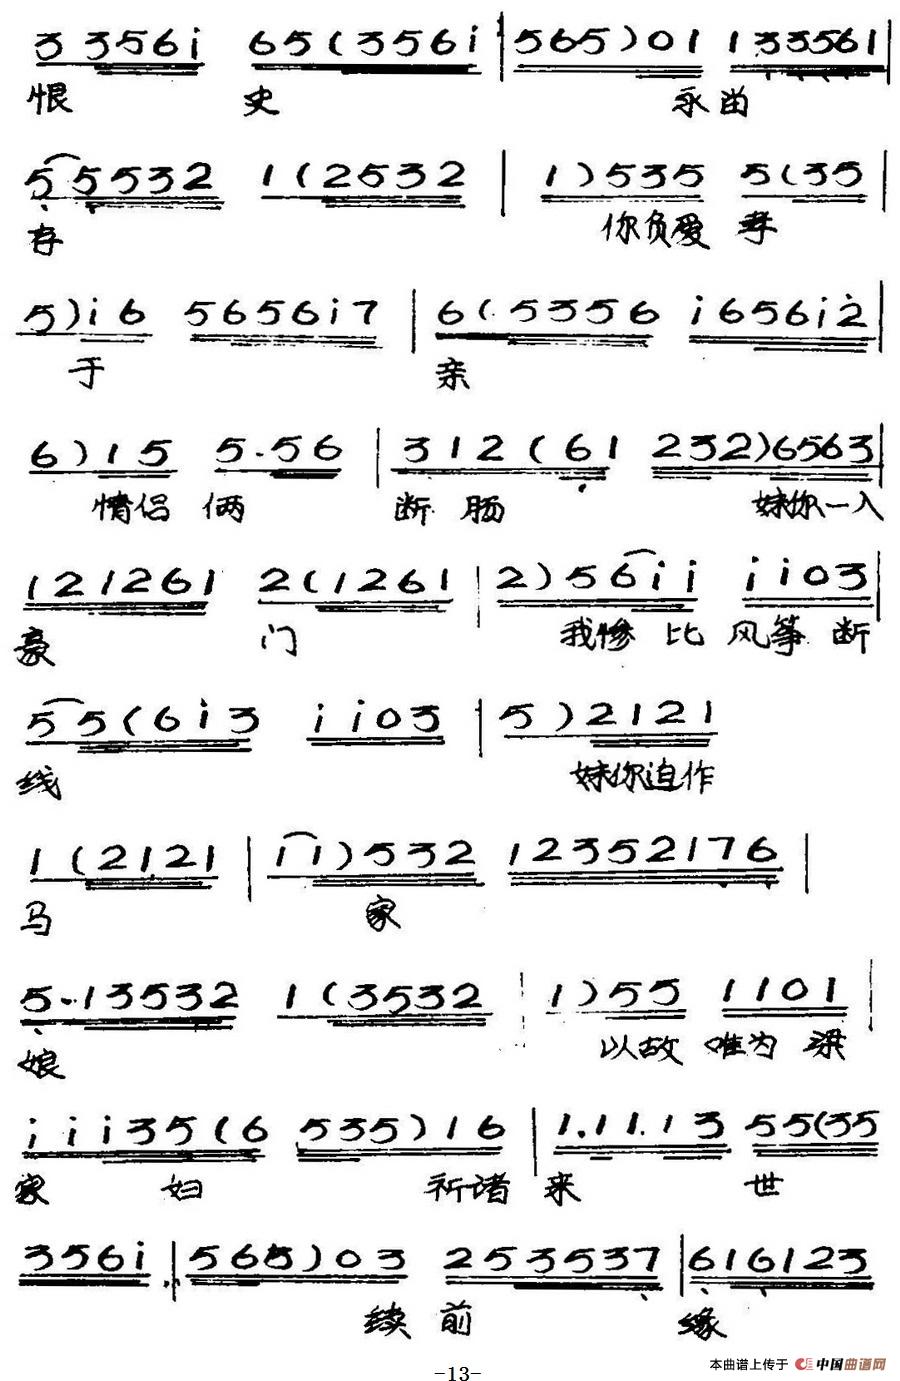 3 3356i 65(356i | 565)01 1 33561 |
恨 史 永留
5 5532 1(2532 | 1)535 5(35 |
存 你负爱 孝
5)i6 56565i7 | 6(5356 i656i2 |
于 亲
6)15 5.56 | 312(61 232)6563 |
情侣俩 断肠 妹你一入
121261 2(1261 | 2)56ii ii03 |
豪 门 我惨比风筝断
55(6i3 ii03 | 5)2121
线 妹你迫作
1(2121 | 11)532 12352176 |
马 家
5.13532 1(3532 | 1)55 1101 |
娘 以故 唯为梁
iii35(6 535)16 | 1.11.13 55(35
家 妇 祈诸来 世
356i | 565)03 2535537 | 616123
续前 缘
-13-
本曲谱上传于 中国曲谱网